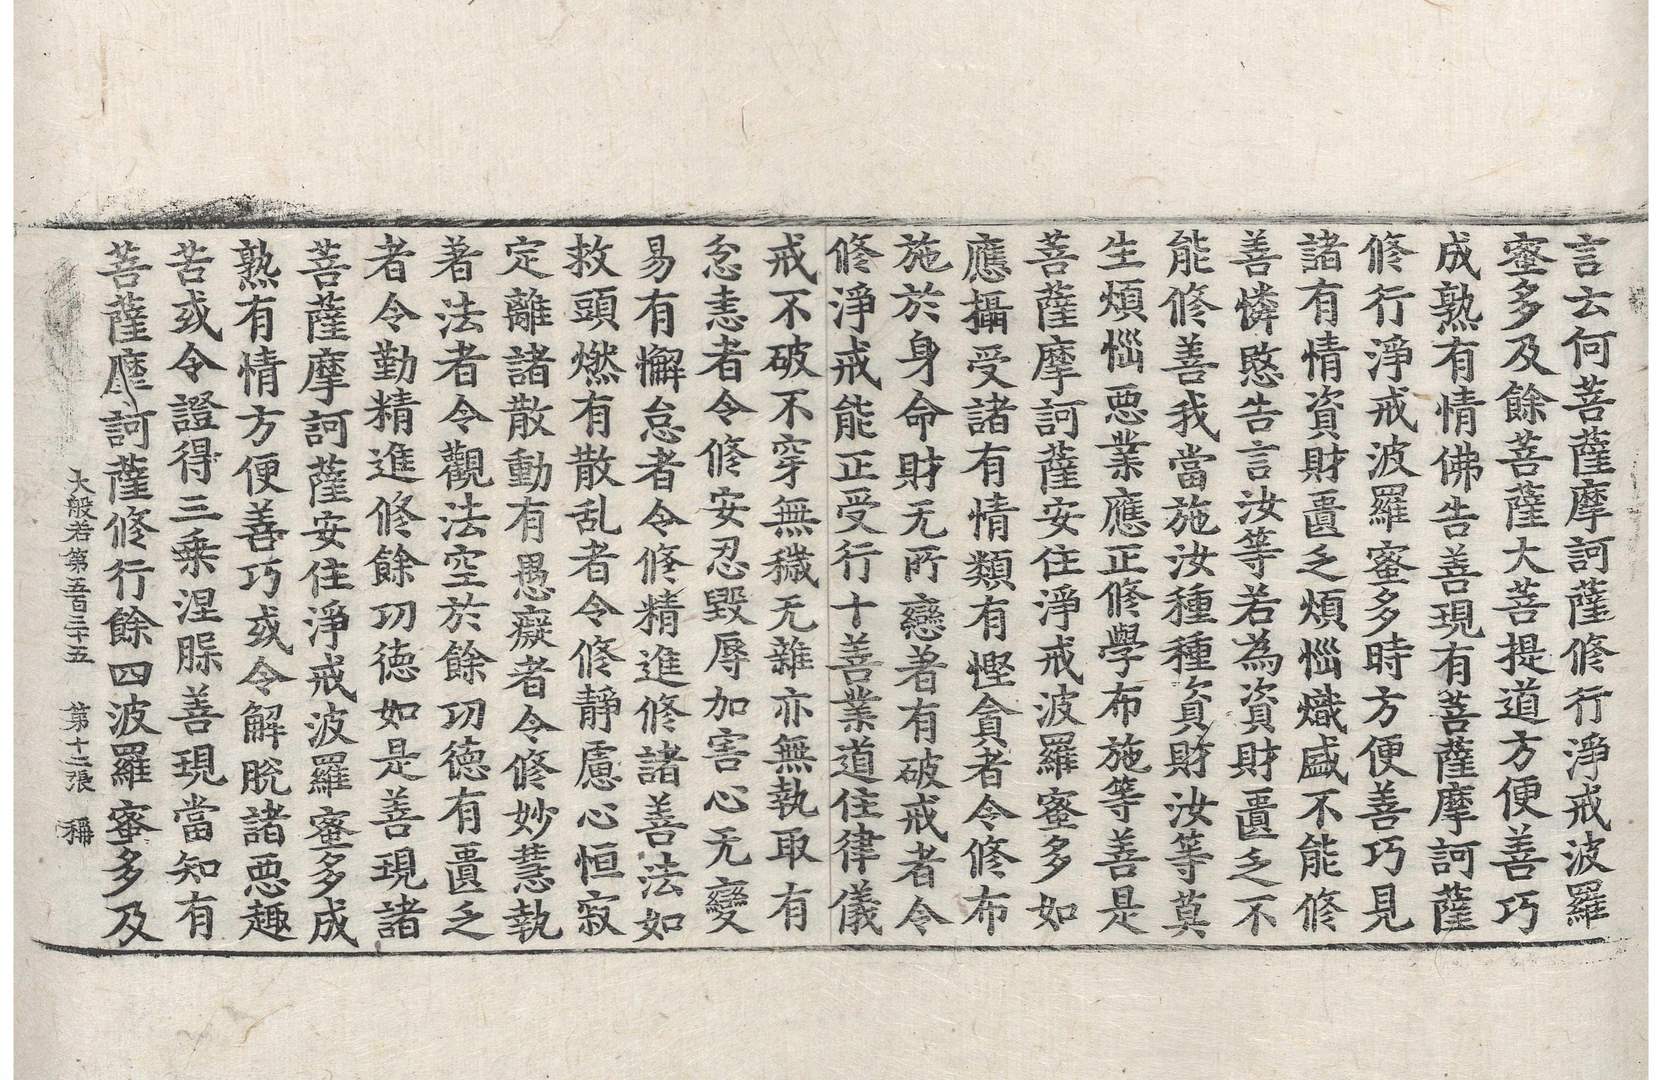 言云何菩薩摩訶薩修行淨戒波羅
蜜多及餘菩薩大菩提道方便善巧
成熟有情佛告善現有菩薩摩訶薩
修行淨戒波羅蜜多時方便善巧見
諸有情資財匱乏煩惱熾盛不能修
善憐愍告言汝等若為資財匱乏不
能修善我當施汝種種資財汝等莫
生煩惱惡業應正修學布施等善是
菩薩摩訶薩安住淨戒波羅蜜多如
應攝受諸有情類有慳貪者令修布
施於身命財无所戀著有破戒者令
修淨戒能正受行十善業道住律儀
戒不破不穿無穢无雜亦無執取有
忿恚者令修安忍毀辱加害心无變
易有懈怠者令修精進修諸善法如
救頭燃有散乱者令修靜慮心恒寂
定離諸散動有愚癡者令修妙慧執
著法者令觀法空於餘功德有匱乏
者令勤精進修餘功德如是善現諸
菩薩摩訶薩安住淨戒波羅蜜多成
熟有情方便善巧或令解脫諸惡趣
苦或令證得三乘涅槃善現當知有
菩薩摩訶薩修行餘四波羅蜜多及
大般若第五百三十五 第十二張 稱